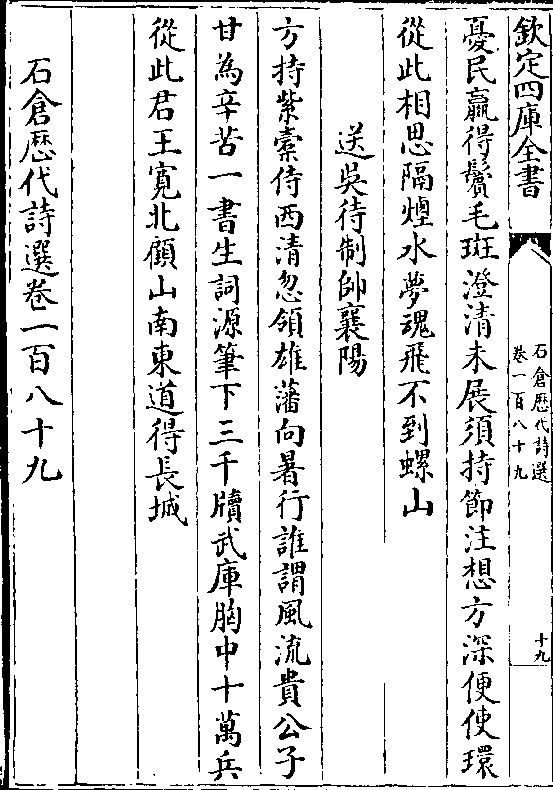 欽定四庫全書
石倉歴代詩選
卷一百八十九
十九
憂民贏得鬢毛斑澄清未展須持節注想方深便使環
從此相思隔煙水夢魂飛不到螺山
送吳待制帥襄陽
方持紫橐侍西清忽領雄藩向暑行誰謂風流貴公子
甘為辛苦一書生詞源筆下三千牘武庫胸中十萬兵
從此君王寛北顧山南東道得長城
石倉歴代詩選卷一百八十九